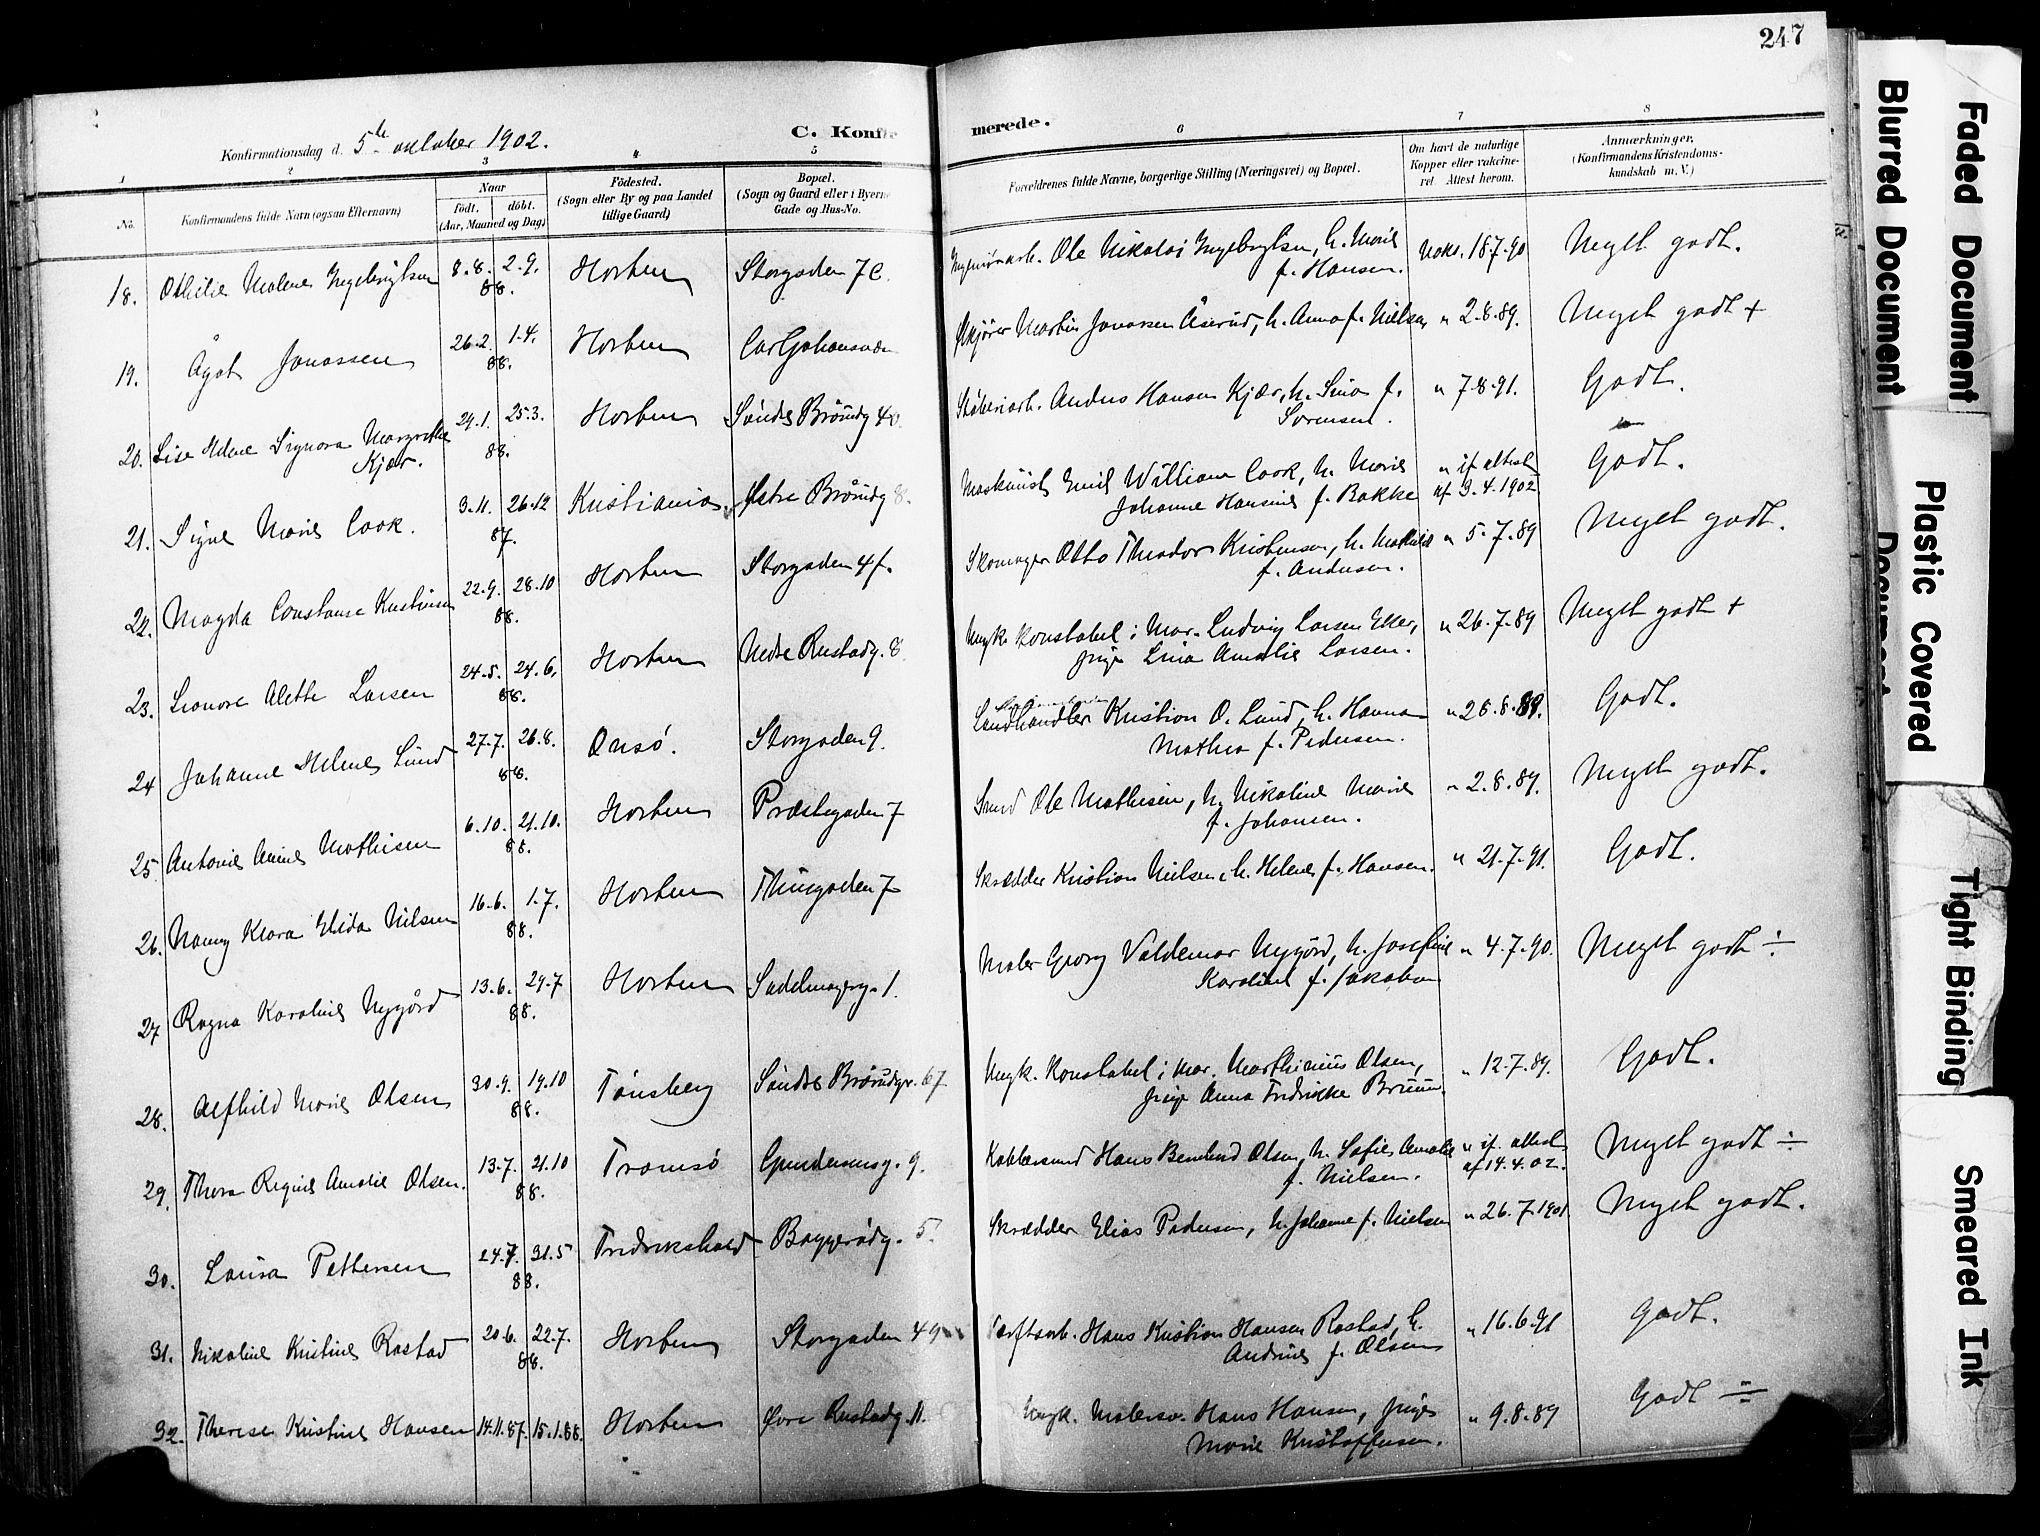 247
Konfirmationsdag d. 5te oktober 1902. C. Konfirmerede.
1 2 3 4 5 6 7 8
No.
Konfirmandens fulde Navn (ogsaa Efternavn)
Naar
födt. döbt.
(Aar, Maaned og Dag)
Födested.
(Sogn eller By og paa Landet
tillige Gaard)
Bopæl.
(Sogn og Gaard eller i Byerne
Gade og Hus-No.
Forældrenes fulde Navne, borgerlige Stilling (Næringsvei) og Bopæl.
Om havt de naturlige
Kopper eller vakcine-
ret. Attest herom.
Anmærkninger.
(Konfirmandens Kristendoms-
kundskab m. V.)
18. Othilie Malene Ingebrigtsen 8.8. 2.9. 88. Horten Storgaden 7c. Ole Nikolai Ingebrigtsen, h. Marie
f. Hansen. vaks. 18.7.90 Meget godt.
19. Ågot Jonassen 26.2. 1.4. 88. Horten Carljohansværn Martin Jonassen Åserud, h. Anna f. Nielsen " 2.8.89. Meget godt +
20. Lise Helene Signora Margrethe
Kjær. 29.1. 25.3. 88. Horten Söndre Bröndg 40. Støberiarb. Anders Hansen Kjær, h. Sina f.
Sörensen. " 7.8.91. Godt.
21. Signe Marie Cook. 3.11. 26.12 87. Kristiania Østre Bröndg 8. Maskinist Emil William Cook, h. Marie
Johanne Hansine f. Bakke " if attest
af 3.4.1902 Godt.
22. Magda Constanse Kristensen 22.9. 28.10 88. Horten Storgaden 4f. Skomager Otto Theodor Kristensen, h. Mathilde
f. Andersen. " 5.7.89 Meget godt.
23. Leonore Alette Larsen 24.5. 24.6. 88. Horten Nedre Rustadg. 8. Ungk. konstabel i Mar. Ludvig Larsen Eller,
pige Lina Amalie Larsen. " 26.7.89 Meget godt +
24 Johanne Helene Lund 27.7. 26.8. 88. Onsö. Storgaden 9. Landhandler Kristian O. Lund, h. Hanna
Mathea f. Pedersen. " 28.8.89. Godt.
25. Antonie Amine Mathisen 6.10. 21.10. 88. Horten Præstegaden 7 Smed Ole Mathisen, h. Nikoline Marie
f. Johansen. " 2.8.89. Meget godt.
26. Nanny Klara Elida Nilsen 16.6. 1.7. 88. Horten Thingaden 7 Skrædder Kristian Nielsen, h. Helene f. Hansen. " 21.7.91. Godt.
27 Ragna Karoline Nygård 13.6. 29.7 88. Horten Sadelmagerg. 1. Maler Georg Valdemar Nygård, h. Josefine
Karoline f. Jakobsen " 4.7.90. Meget godt ÷
28. Alfhild Marie Olsen 30.9. 19.10 88. Tönsberg Söndre Bröndgr. 67. Ungk. Konstabel i Mar. Marthinius Olsen,
pige Anna Fredrikke Bruun. " 12.7.89. Godt.
29. Thora Regine Amalie Olsen. 13.7. 21.10 88. Tromsö Gundersensg. 9. Hans Bernhard Olsen, h. Sofie Amalie
f. Nielsen. " if. attest
af 14.4.02. Meget godt ÷
30. Laura Pettersen 24.7. 31.5 88. Fredrikshald Baggerödg. 5. Skrædder Elias Pedersen, h. Johanne f. Nielsen " 26.7.1901 Meget godt.
31. Nikoline Kristine Rastad 20.6. 22.7. 88. Horten Storgaden 49 Værftsarb. Hans Kristian Hansen Rastad, h.
Andrine f. Olsen " 16.6.91 Godt.
32. Therese Kristine Hansen 14.11.87. 15.1.88. Horten Øvre Rustadg. 11. Ungk. Malersv. Hans Hansen, pige
Marie Kristoffersen. " 9.8.89 Godt ÷
Faded Document
Blurred Document
Plastic Covered
Document
Tight Binding
Smeared Ink